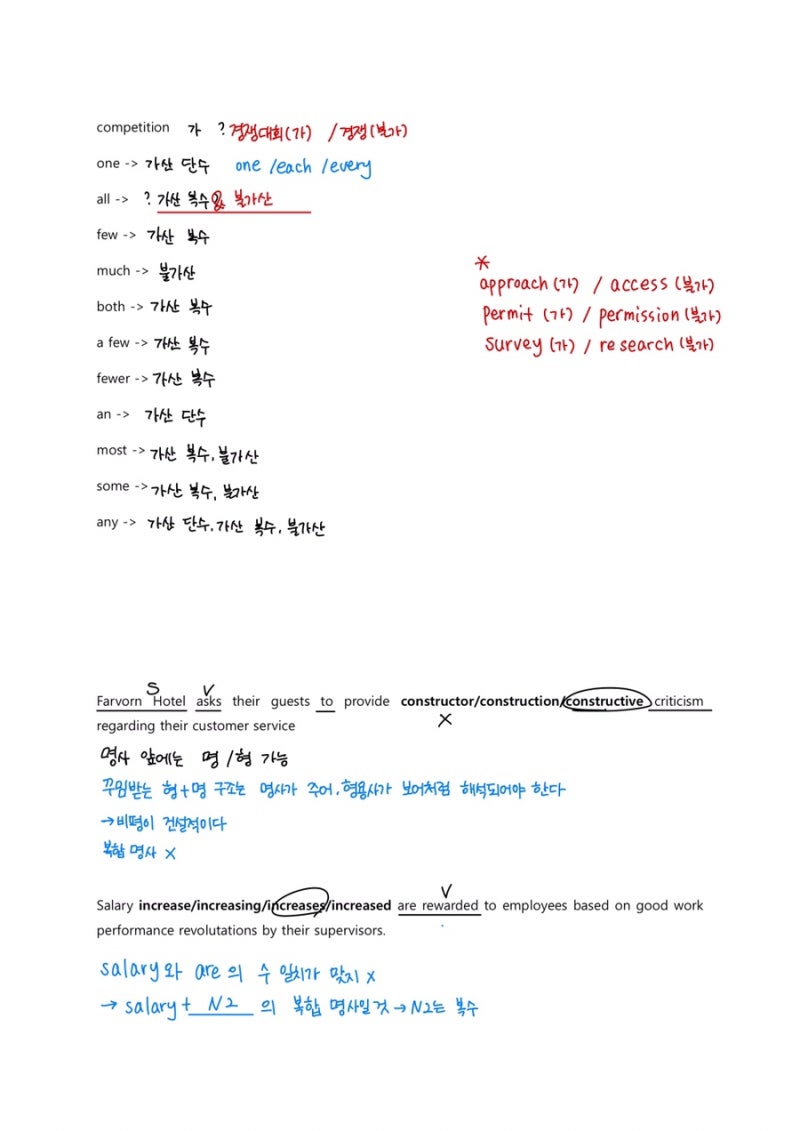 competition 가 ? 경쟁대회(가) / 경쟁(불가)
one -> 가산 단수 one /each /every
all -> ? 가산 복수 & 불가산
few -> 가산 복수
much -> 불가산
*
approach (가) / access (불가)
both -> 가산 복수
permit (가) / permission (불가)
a few -> 가산 복수
survey (가) / research (불가)
fewer -> 가산 복수
an -> 가산 단수
most -> 가산 복수, 불가산
some -> 가산 복수, 불가산
any -> 가산 단수, 가산 복수, 불가산
S V
Farvorn Hotel asks their guests to provide constructor/construction/constructive criticism
X
regarding their customer service
명사 앞에는 명 / 형 가능
꾸밈받는 형+명 구조는 명사가 주어, 형용사가 보어처럼 해석되어야 한다
→ 비평이 건설적이다
복합 명사 X
V
Salary increase/increasing/increases/increased are rewarded to employees based on good work
performance revolutations by their supervisors.
salary와 are의 수 일치가 맞지 X
→ salary + N2 의 복합 명사일 것 → N2는 복수